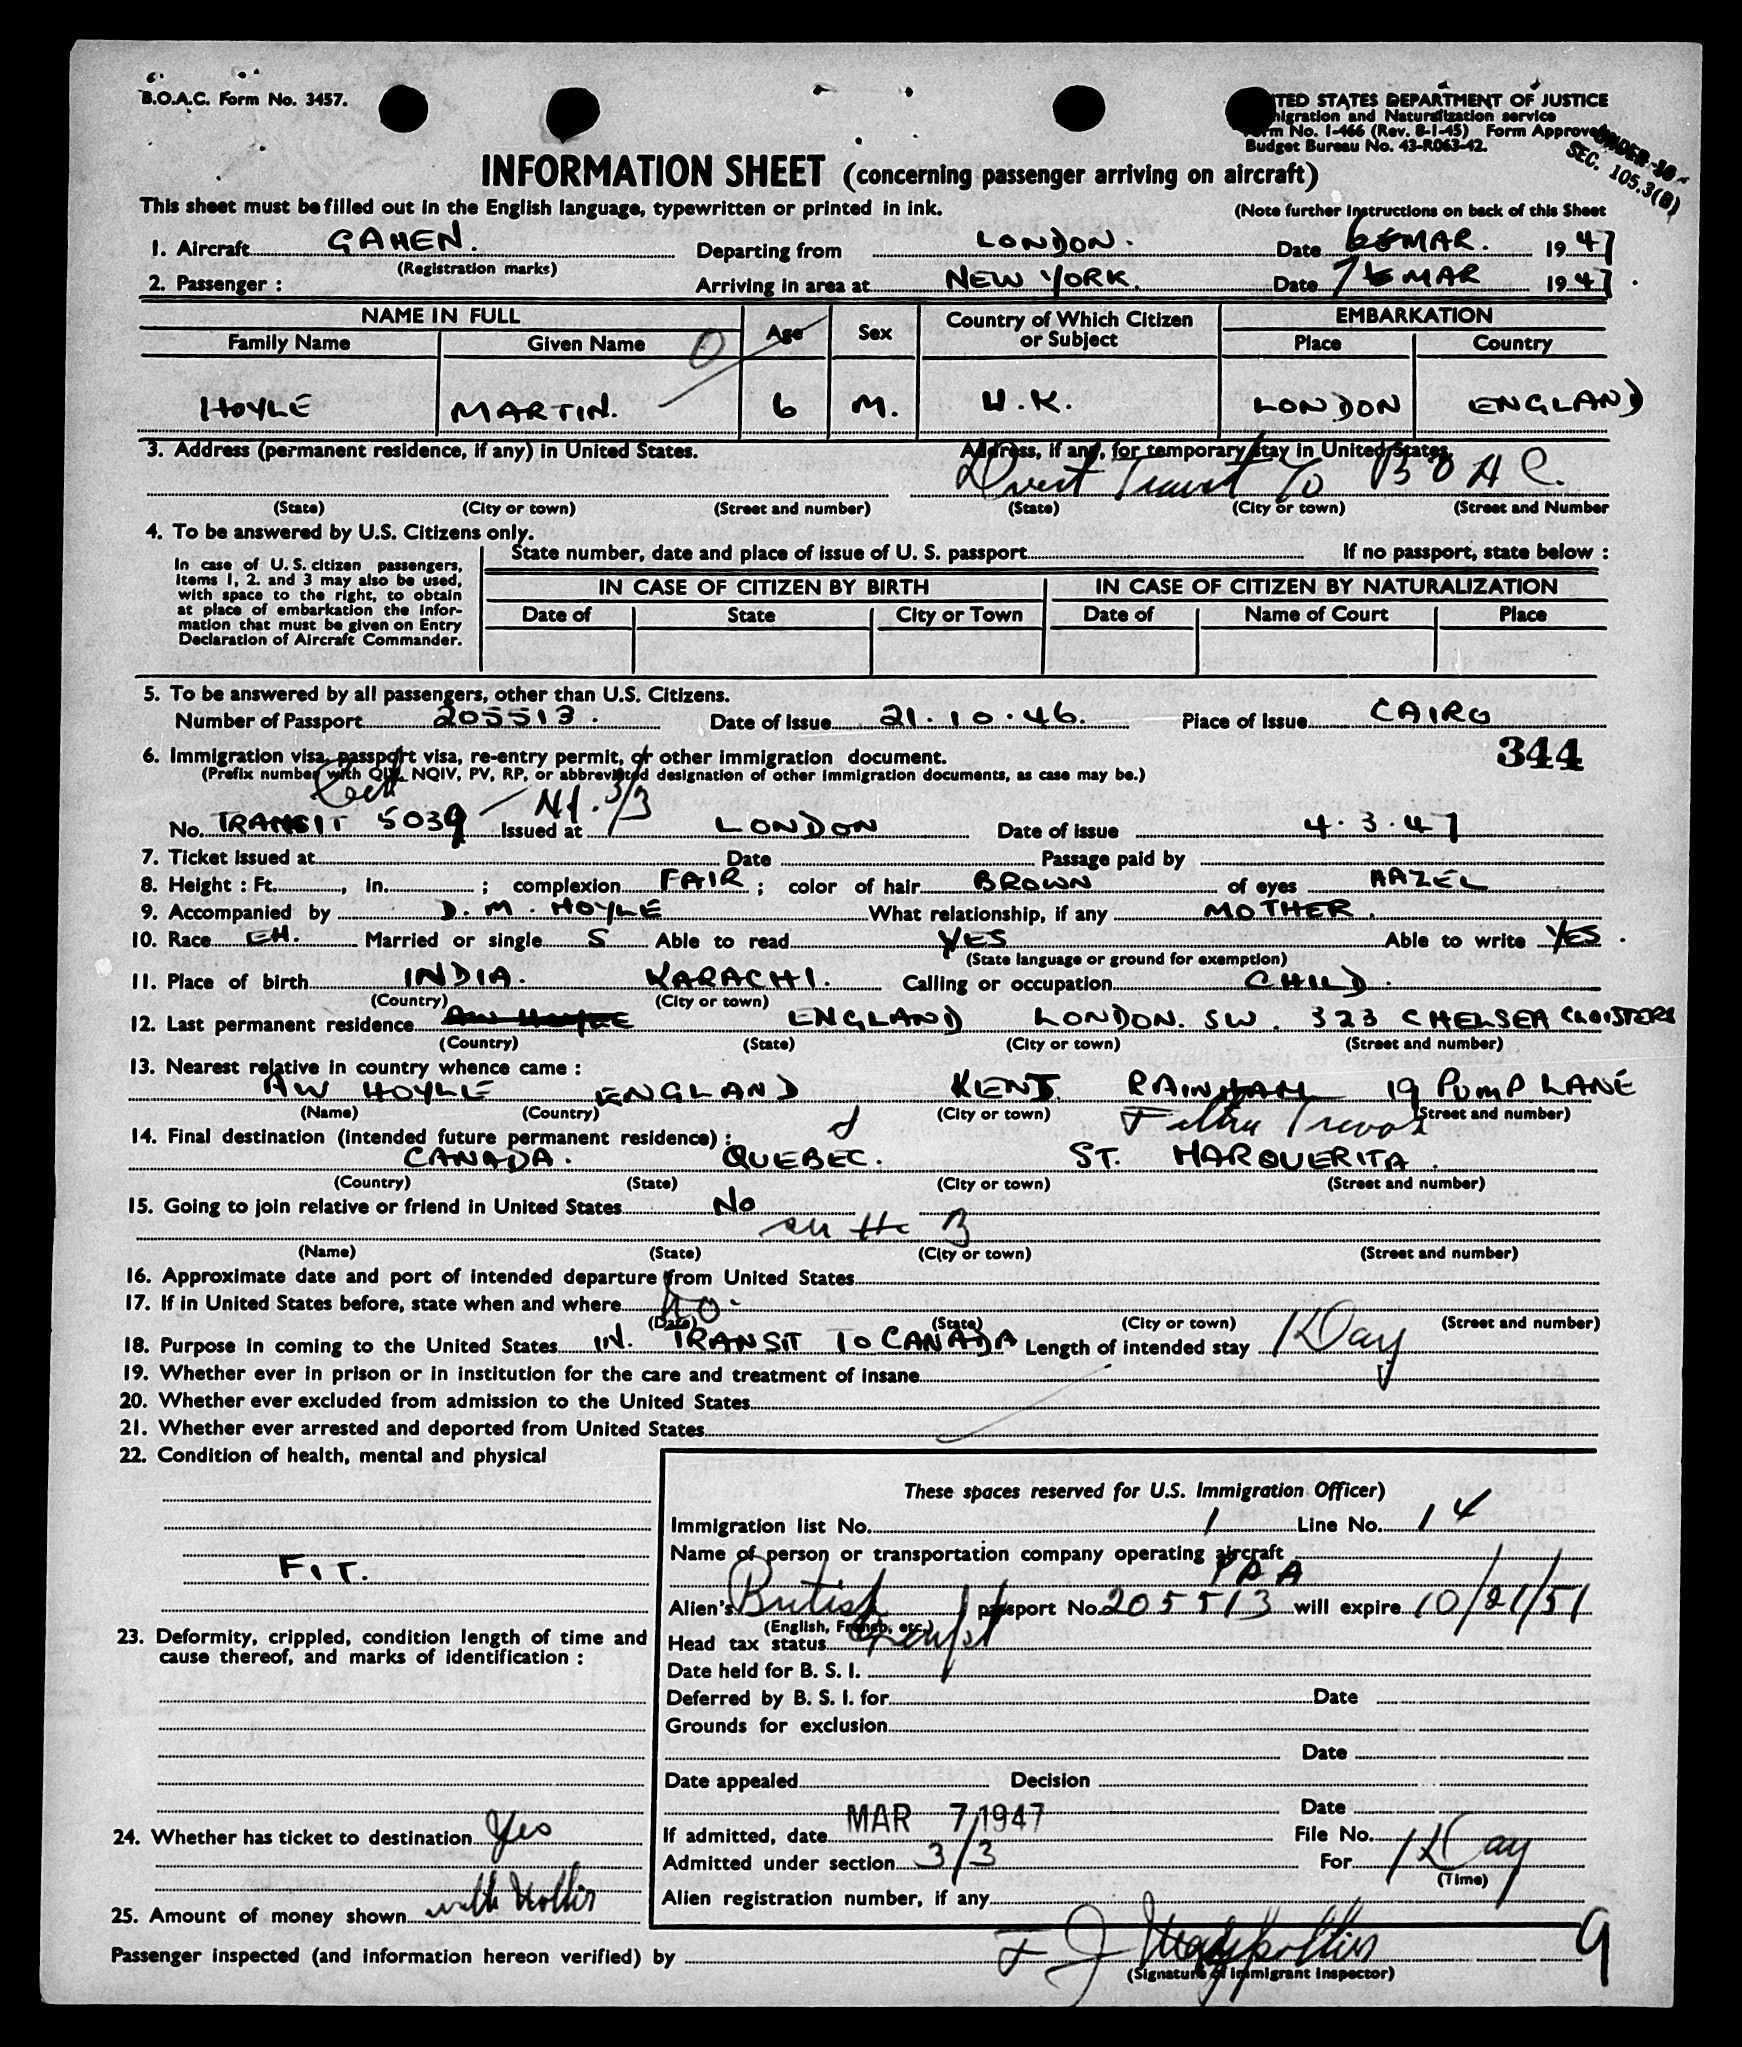 B.O.A.C. Form No. 3457.
TED STATES DEPARTMENT OF JUSTICE
igration and Naturalization service
Form No. I-466 (Rev. 8-1-45) Form Approved
Budget Bureau No. 43-R063-42.
UNDER 16
SEC. 105.3(B)
INFORMATION SHEET (concerning passenger arriving on aircraft)
This sheet must be filled out in the English language, typewritten or printed in ink. (Note further Instructions on back of this Sheet
1. Aircraft GAHEN. Departing from LONDON. Date MAR. 1947
(Registration marks)
2. Passenger : Arriving in area at NEW YORK. Date 7 MAR 1947.
NAME IN FULL Age Sex Country of Which Citizen or Subject EMBARKATION
Family Name Given Name Place Country
HOYLE MARTIN. 6 M. U.K. LONDON ENGLAND
3. Address (permanent residence, if any) in United States. Address, if any, for temporary stay in United States.
Direct Transit c/o BOAC.
(State) (City or town) (Street and number) (State) (City or town) (Street and Number
4. To be answered by U.S. Citizens only.
In case of U.S. citizen passengers, items 1, 2. and 3 may also be used, with space to the right, to obtain at place of embarkation the information that must be given on Entry Declaration of Aircraft Commander.
State number, date and place of issue of U. S. passport If no passport, state below :
IN CASE OF CITIZEN BY BIRTH IN CASE OF CITIZEN BY NATURALIZATION
Date of State City or Town Date of Name of Court Place
5. To be answered by all passengers, other than U.S. Citizens.
Number of Passport 205513. Date of Issue 21.10.46. Place of Issue CAIRO
6. Immigration visa, passport visa, re-entry permit, or other immigration document. 344
(Prefix number with QIV, NQIV, PV, RP, or abbreviated designation of other immigration documents, as case may be.)
3/3
No. TRANSIT 5039 Issued at LONDON Date of issue 4.3.47
7. Ticket issued at Date Passage paid by
8. Height : Ft. , in. ; complexion FAIR ; color of hair BROWN of eyes HAZEL
9. Accompanied by D.M. HOYLE What relationship, if any MOTHER.
10. Race EH. Married or single S Able to read YES Able to write YES.
(State language or ground for exemption)
11. Place of birth INDIA. KARACHI. Calling or occupation CHILD.
(Country) (City or town)
12. Last permanent residence AW HOYLE ENGLAND LONDON. SW. 323 CHELSEA CLOISTERS
(Country) (State) (City or town) (Street and number)
13. Nearest relative in country whence came :
AW HOYLE ENGLAND KENT. RAINHAM 19 PUMP LANE
(Name) (Country) (City or town) (Street and number)
14. Final destination (intended future permanent residence) :
CANADA. QUEBEC. ST. MARQUERITA.
(Country) (State) (City or town) (Street and number)
15. Going to join relative or friend in United States No
(Name) (State) (City or town) (Street and number)
16. Approximate date and port of intended departure from United States
17. If in United States before, state when and where No.
(Date) (State) (City or town) (Street and number)
18. Purpose in coming to the United States IN. TRANSIT TO CANADA Length of intended stay 1 Day
19. Whether ever in prison or in institution for the care and treatment of insane
20. Whether ever excluded from admission to the United States
21. Whether ever arrested and deported from United States
22. Condition of health, mental and physical
FIT.
23. Deformity, crippled, condition length of time and cause thereof, and marks of identification :
24. Whether has ticket to destination Yes
25. Amount of money shown with Mother
These spaces reserved for U.S. Immigration Officer)
Immigration list No. 1 Line No. 14
Name of person or transportation company operating aircraft
PAA
Alien's British passport No. 205513 will expire 10/21/51
(English, French, etc.)
Head tax status Exempt
Date held for B. S. I.
Deferred by B. S. I. for Date
Grounds for exclusion
Date
Date appealed Decision
Date
If admitted, date MAR 7 1947 File No.
Admitted under section 3/3 For 1 Day
(Time)
Alien registration number, if any
Passenger inspected (and information hereon verified) by
(Signature of Immigrant Inspector)
9